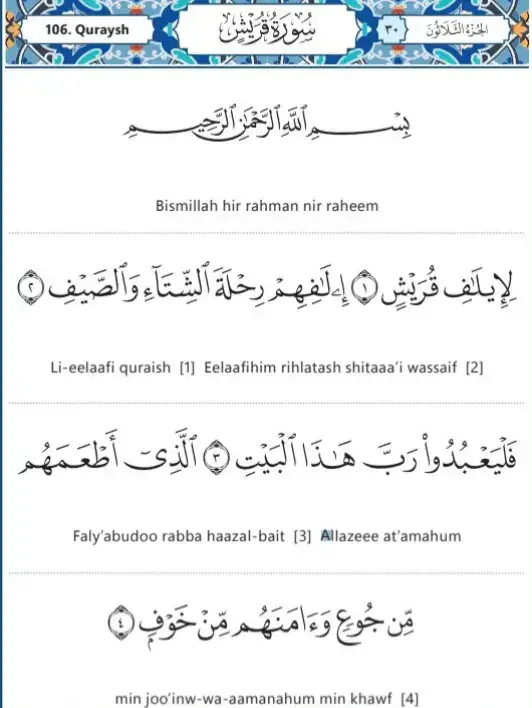 106. Quraysh سُورَةُ قُرَيْشٍ ٣٠ الجُزءُ الثَّلَاثُونَ
بِسْمِ ٱللَّهِ ٱلرَّحْمَٰنِ ٱلرَّحِيمِ
Bismillah hir rahman nir raheem
لِإِيلَٰفِ قُرَيْشٍ ١ إِۦلَٰفِهِمْ رِحْلَةَ ٱلشِّتَآءِ وَٱلصَّيْفِ ٢
Li-eelaafi quraish [1] Eelaafihim rihlatash shitaaa’i wassaif [2]
فَلْيَعْبُدُوا۟ رَبَّ هَٰذَا ٱلْبَيْتِ ٣ ٱلَّذِىٓ أَطْعَمَهُم
Faly’abudoo rabba haazal-bait [3] Allazeee at’amahum
مِّن جُوعٍ وَءَامَنَهُم مِّنْ خَوْفٍۭ ٤
min joo’inw-wa-aamanahum min khawf [4]